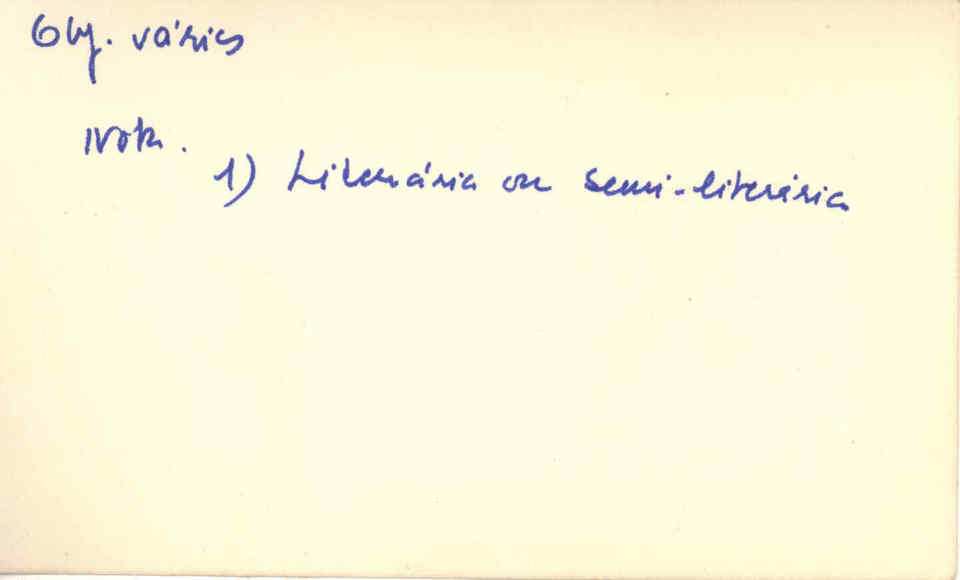 Obj. vários
Nota.
1) Literária ou semi-literária